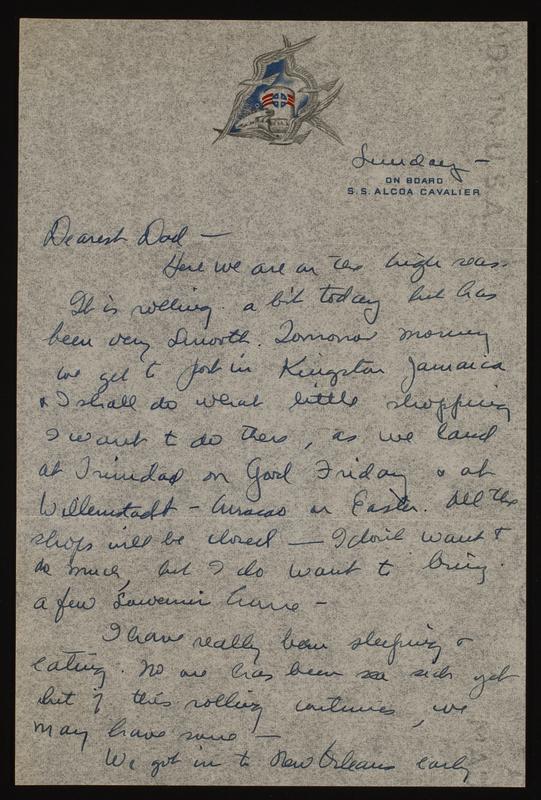 Sunday —
ON BOARD
S.S. ALCOA CAVALIER
Dearest Dad —
Here we are on the high seas.
It is rolling a bit today but has
been very smooth. Tomorrow morning
we get to port in Kingston Jamaica
& I shall do what little shopping
I want to do there, as we land
at Trinidad on Good Friday & at
Willemstadt - Curacao on Easter. All the
shops will be closed — I don't want to
do much, but I do want to bring
a few souvenirs home —
I have really been sleeping &
eating. No one has been sea sick yet
but if this rolling continues, we
may have some —
We got in to New Orleans early
MADE IN U.S.A.